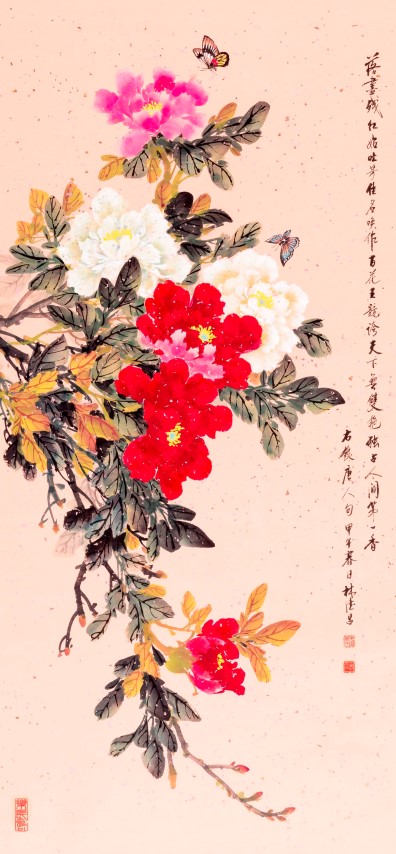 落尽残红始吐芳佳名唤作百花王競誇天下無雙艶独占人间第一香
右錄唐人句甲午春日林德昌